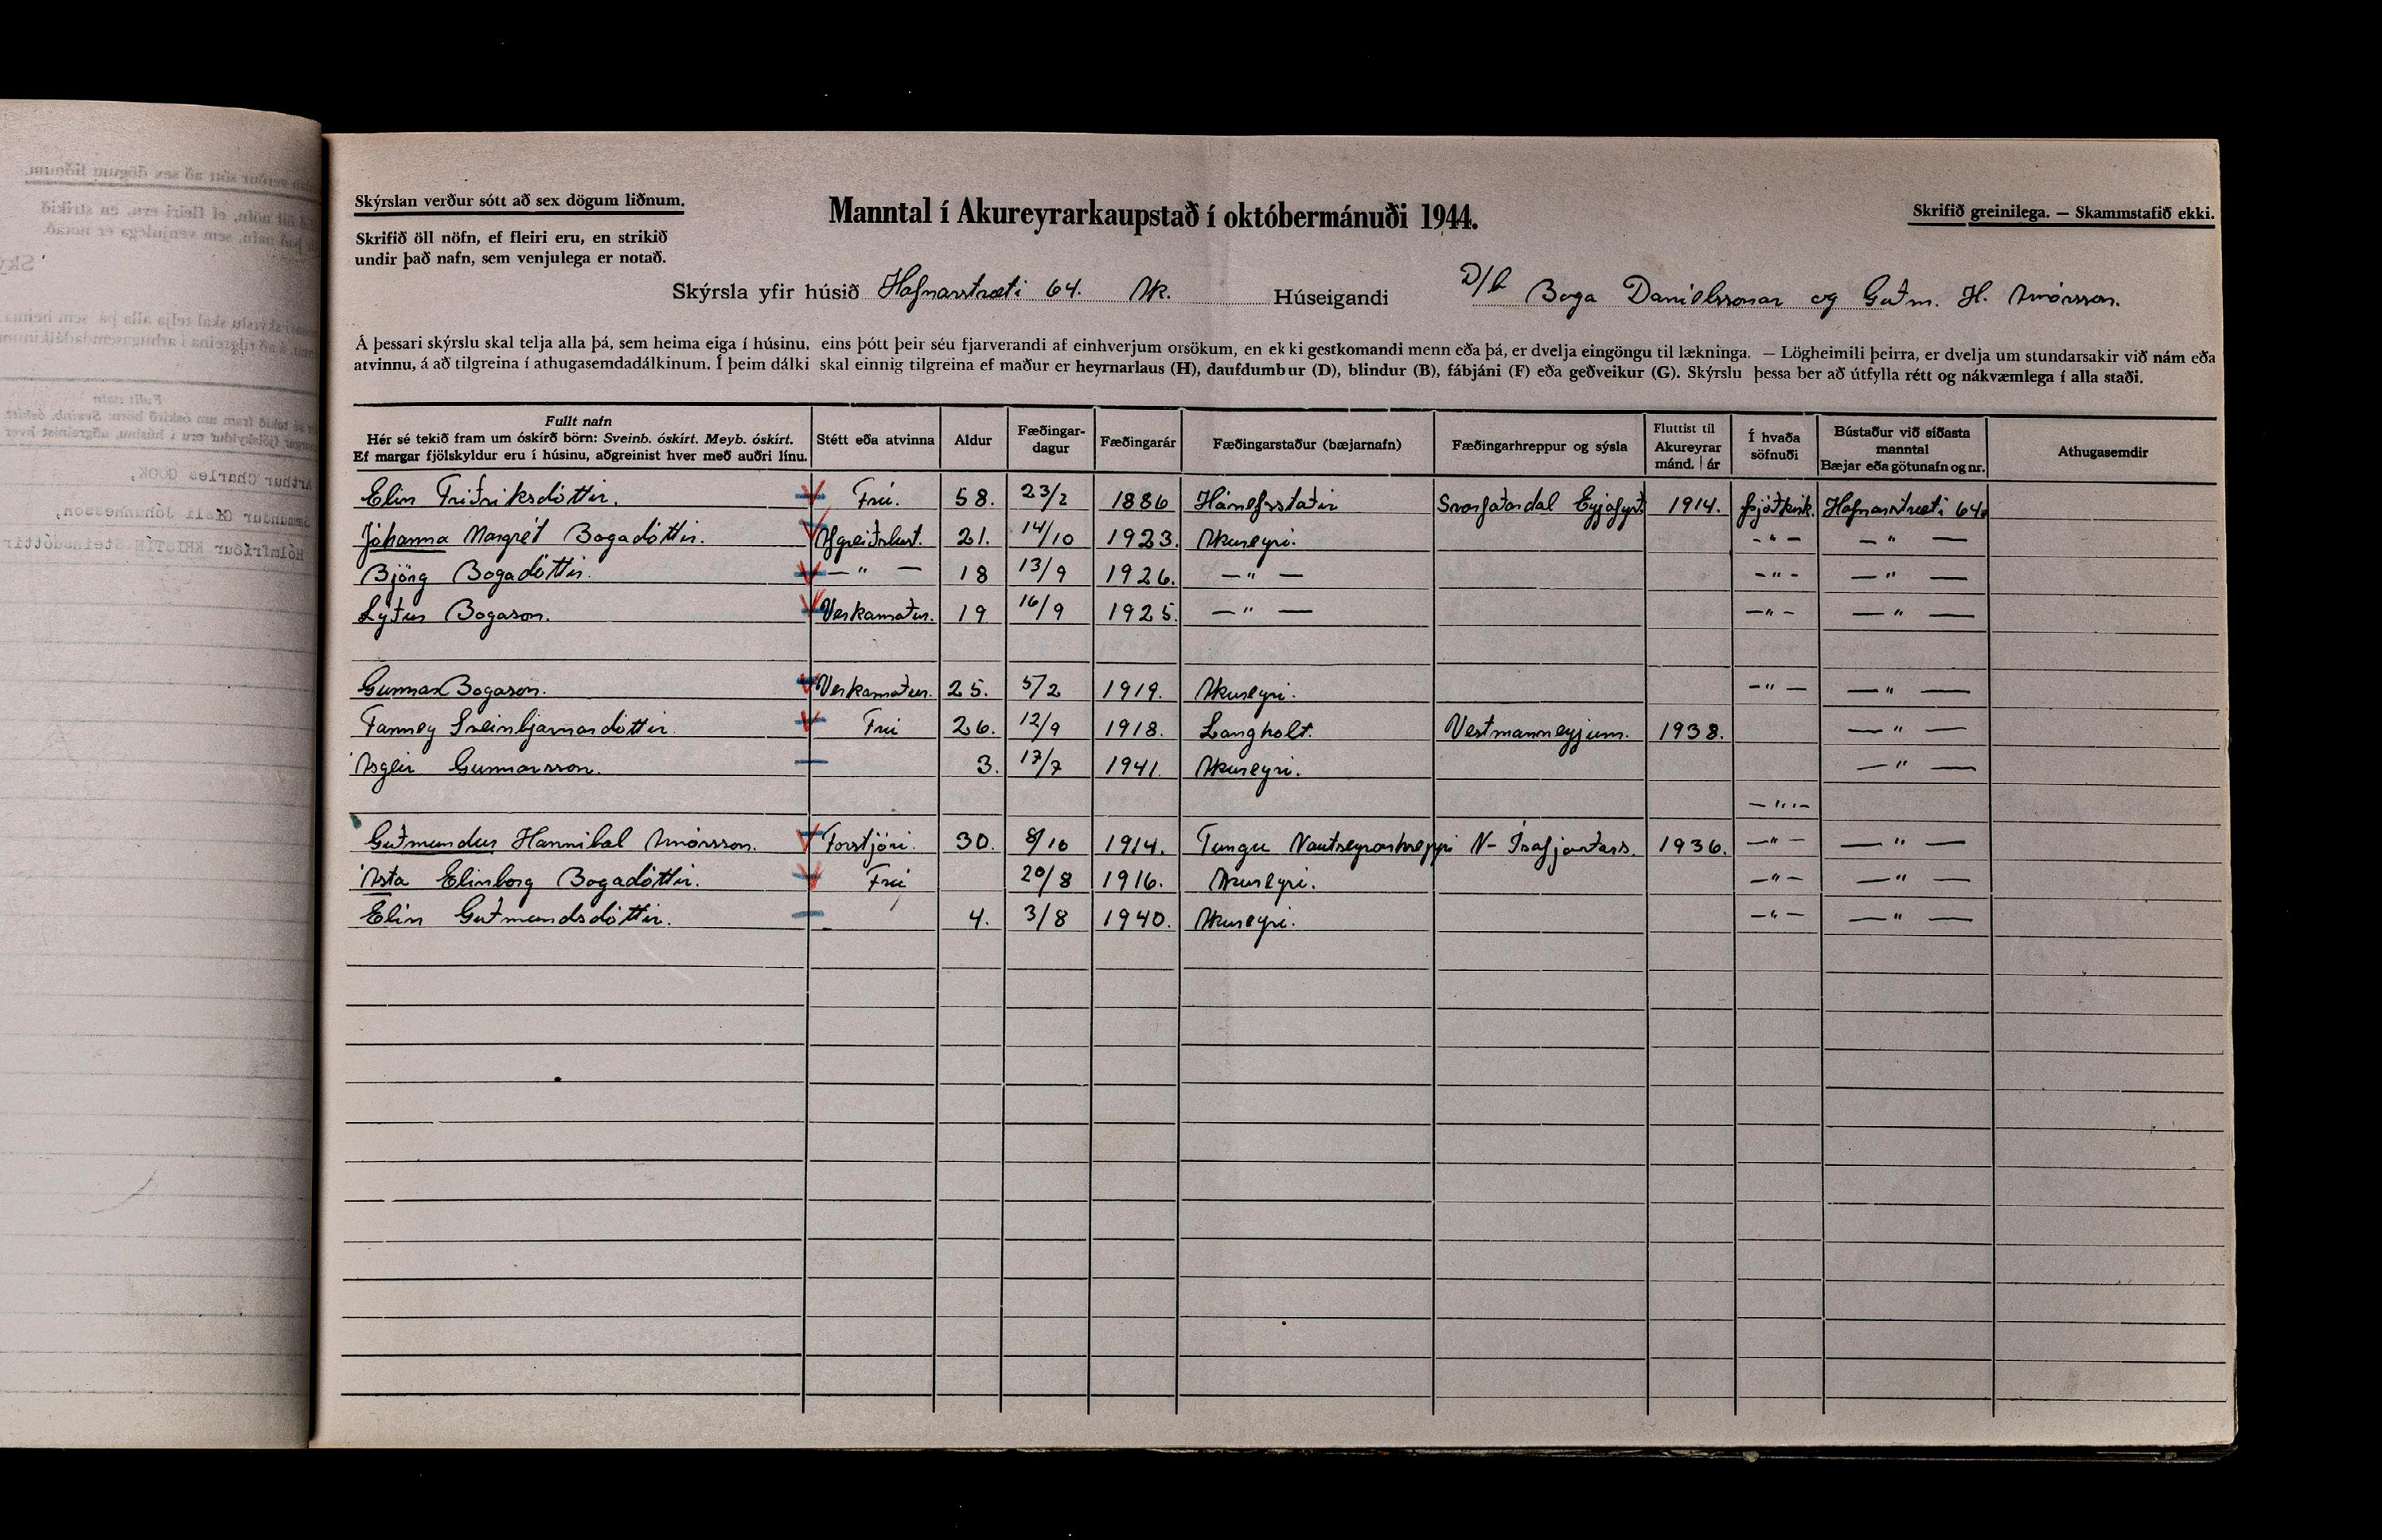 Skýrslan verður sótt að sex dögum liðnum.
Skrifið öll nöfn, ef fleiri eru, en strikið
undir það nafn, sem venjulega er notað.
Manntal í Akureyrarkaupstað í októbermánuði 1944.
Skrifið greinilega. — Skammstafið ekki.
Skýrsla yfir húsið Hafnarstræti 64. Ak. Húseigandi D/b Boga Daníelssonar og Guðm. H. Arnórsson.
Á þessari skýrslu skal telja alla þá, sem heima eiga í húsinu, eins þótt þeir séu fjarverandi af einhverjum orsökum, en ekki gestkomandi menn eða þá, er dvelja eingöngu til lækninga. — Lögheimili þeirra, er dvelja um stundarsakir við nám eða
atvinnu, á að tilgreina í athugasemdadálkinum. Í þeim dálki skal einnig tilgreina ef maður er heyrnarlaus (H), daufdumbur (D), blindur (B), fábjáni (F) eða geðveikur (G). Skýrslu þessa ber að útfylla rétt og nákvæmlega í alla staði.
Fullt nafn
Hér sé tekið fram um óskírð börn: Sveinb. óskírt. Meyb. óskírt.
Ef margar fjölskyldur eru í húsinu, aðgreinist hver með auðri línu.
Stétt eða atvinna
Aldur
Fæðingar-
dagur
Fæðingarár
Fæðingarstaður (bæjarnafn)
Fæðingarhreppur og sýsla
Fluttist til
Akureyrar
mánd. | ár
Í hvaða
söfnuði
Bústaður við síðasta
manntal
Bæjar eða götunafn og nr.
Athugasemdir
Elín Friðriksdóttir. Frú. 58. 23/2 1886 Hánefsstaðir Svarfaðardal Eyjafj. 1914. Þjóðkirk. Hafnarstræti 64.
Jóhanna Margrét Bogadóttir. Afgreiðslust. 21. 14/10 1923. Akureyri. -"- -"-
Björg Bogadóttir. -"- 18 13/9 1926. -"- -"- -"-
Lýður Bogason. Verkamaður. 19 16/9 1925. -"- -"- -"-
Gunnar Bogason. Verkamaður. 25. 5/2 1919. Akureyri. -"- -"-
Fanney Sveinbjarnardóttir. Frú 26. 12/9 1918. Langholt. Vestmanneyjum. 1938. -"-
Ásgeir Gunnarsson. 3. 17/7 1941. Akureyri. -"-
-"-
Guðmundur Hannibal Arnórsson. Forstjóri. 30. 8/10 1914. Tungu Nauteyrarhreppi N-Ísafjarðars. 1936. -"- -"-
Ásta Elinborg Bogadóttir. Frú 20/8 1916. Akureyri. -"- -"-
Elín Guðmundsdóttir. 4. 3/8 1940. Akureyri. -"- -"-